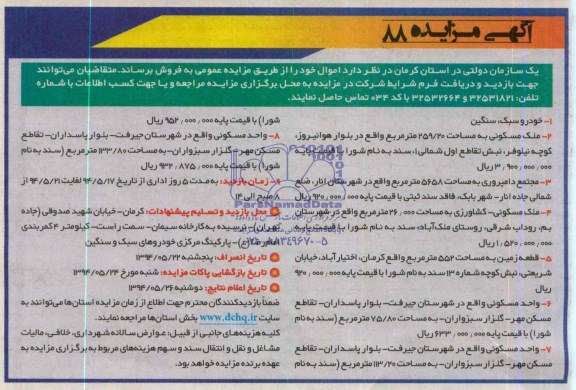 آگهی مزایده ۸۸
یک سازمان دولتی در استان کرمان در نظر دارد اموال خود را از طریق مزایده عمومی به فروش برساند. متقاضیان می‌توانند
جهت بازدید و دریافت فرم شرایط شرکت در مزایده به محل برگزاری مزایده مراجعه و یا جهت کسب اطلاعات با شماره
تلفن: ۳۲۵۳۱۸۲۱ و ۳۲۵۳۲۶۶۴ با کد ۰۳۴ تماس حاصل نمایند.
۱- خودرو سبک، سنگین
۲- ملک مسکونی به مساحت ۲۵۹/۲۰ مترمربع واقع در بلوار هوانیروز،
کوچه نیلوفر، نبش تقاطع اول شمالی، سند به نام شورا با قیمت پایه
۳,۹۰۰,۰۰۰,۰۰۰ ریال
۳- مجتمع دامپروری به مساحت ۵۶۵۸ مترمربع واقع در شهرستان انار، ضلع
شمالی جاده انار- شهر بابک، فاقد سند ثبتی با قیمت پایه ۹۲۰,۰۰۰,۰۰۰ ریال
۴- ملک مسکونی- کشاورزی به مساحت ۲۶,۰۰۰ مترمربع واقع در شهرستان
بم، رودآب شرقی، روستای ملک‌آباد، سند به نام شورا با قیمت پایه
۱,۵۲۰,۰۰۰,۰۰۰ ریال
۵- قطعه زمین به مساحت ۵۵۲ مترمربع واقع کرمان، اختیارآباد، خیابان
شریعتی، نبش کوچه شماره ۱۳ سند به نام شورا با قیمت پایه ۹۲۰,۰۰۰,۰۰۰
ریال
۶- واحد مسکونی واقع در شهرستان جیرفت- بلوار پاسداران- تقاطع
مسکن مهر- گلزار سبزواران- به مساحت ۷۵/۸۰ مترمربع (سند به نام
شورا) با قیمت پایه ۶۳۳,۰۰۰,۰۰۰ ریال
۷- واحد مسکونی واقع در شهرستان جیرفت- بلوار پاسداران- تقاطع
مسکن مهر- گلزار سبزواران- به مساحت ۱۱۳/۲۰ مترمربع (سند به نام
شورا) با قیمت پایه ۹۵۲,۰۰۰,۰۰۰ ریال
۸- واحد مسکونی واقع در شهرستان جیرفت- بلوار پاسداران- تقاطع
مسکن مهر- گلزار سبزواران- به مساحت ۱۳۳/۸۰ مترمربع (سند به نام
شورا) با قیمت پایه ۹۳۲,۸۷۵,۰۰۰ ریال
۹- زمان بازدید: به مدت ۵ روز اداری از تاریخ ۹۴/۵/۱۷ لغایت ۹۴/۵/۲۱ از
۸ صبح الی ۱۴
محل بازدید و تسلیم پیشنهادات: کرمان- خیابان شهید صدوقی (جاده
تهران) نرسیده به کارخانه سیمان- سمت راست- کیلومتر ۴ کمربندی
امام رضا (ع)- پارکینگ مرکزی خودروهای سبک و سنگین
تاریخ انصراف: پنجشنبه ۱۳۹۴/۰۵/۲۲
تاریخ بازگشایی پاکات مزایده: شنبه مورخ ۱۳۹۴/۰۵/۲۴
تاریخ اعلام نتایج: دوشنبه ۱۳۹۴/۰۵/۲۶
ضمناً بازدیدکنندگان محترم جهت اطلاع از زمان مزایده استان‌ها می‌توانند به
سایت www.dchq.ir بخش استان‌ها مراجعه نمایند.
کلیه هزینه‌های جانبی از قبیل: عوارض سالانه شهرداری، خلافی، مالیات
مشاغل و نقل و انتقال سند و سهم هزینه‌های مربوط به برگزاری مزایده به
عهده برنده مزایده خواهد بود.
ParsNamadData